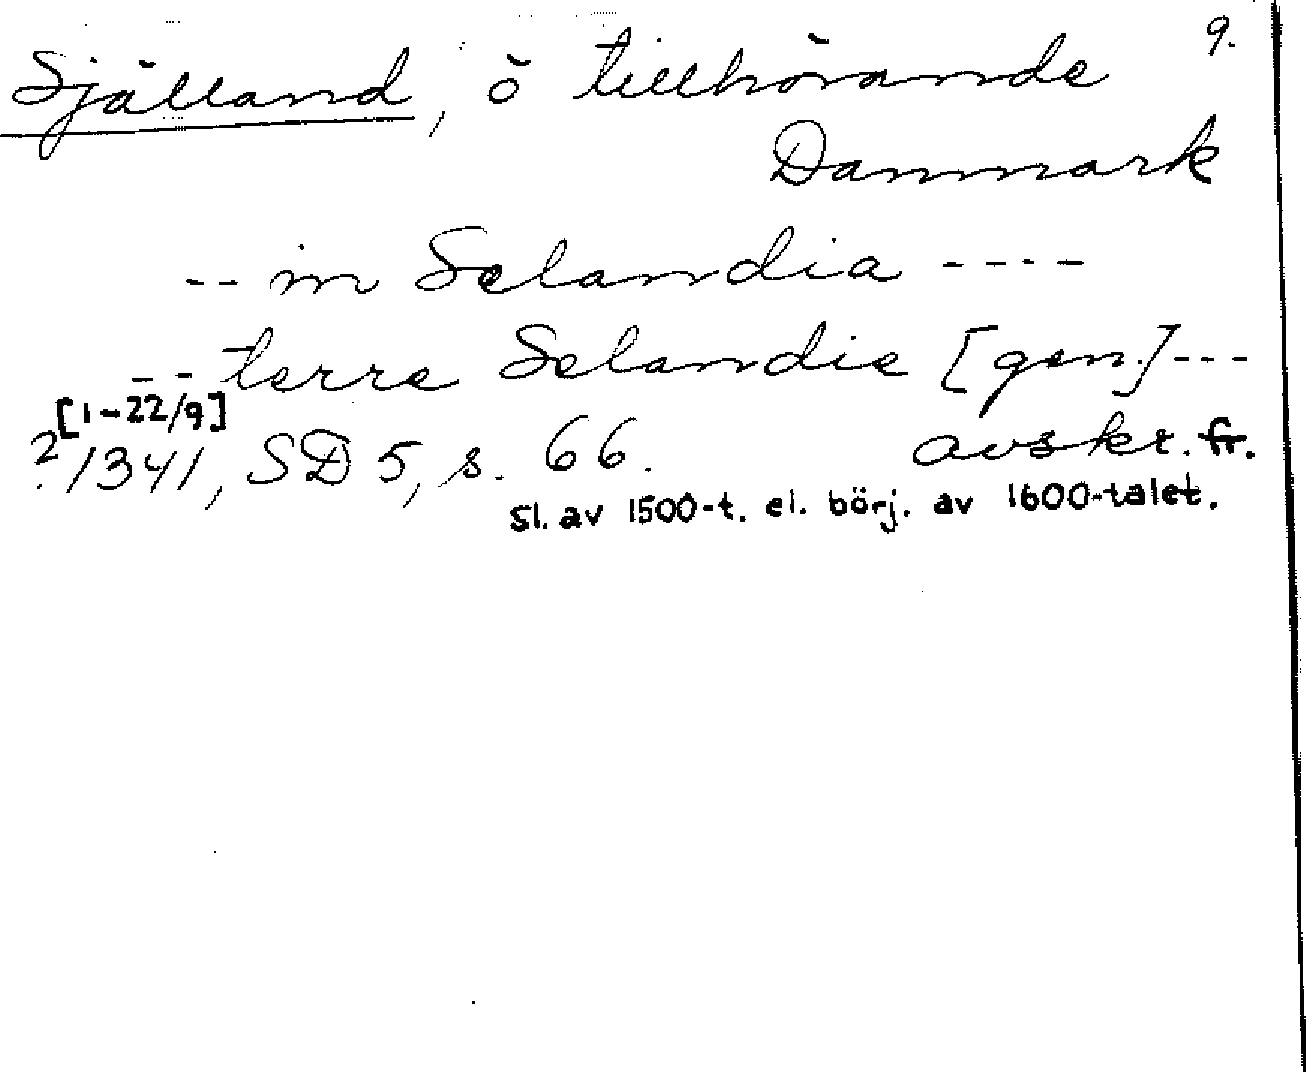 9.
Själland, ö tillhörande
Danmark
-- in Selandia ----
-- terre Selandie [gen.] ---
[1-22/9]
? 1341, SD 5, s. 66. avskr. fr.
sl. av 1500-t. el. börj. av 1600-talet.